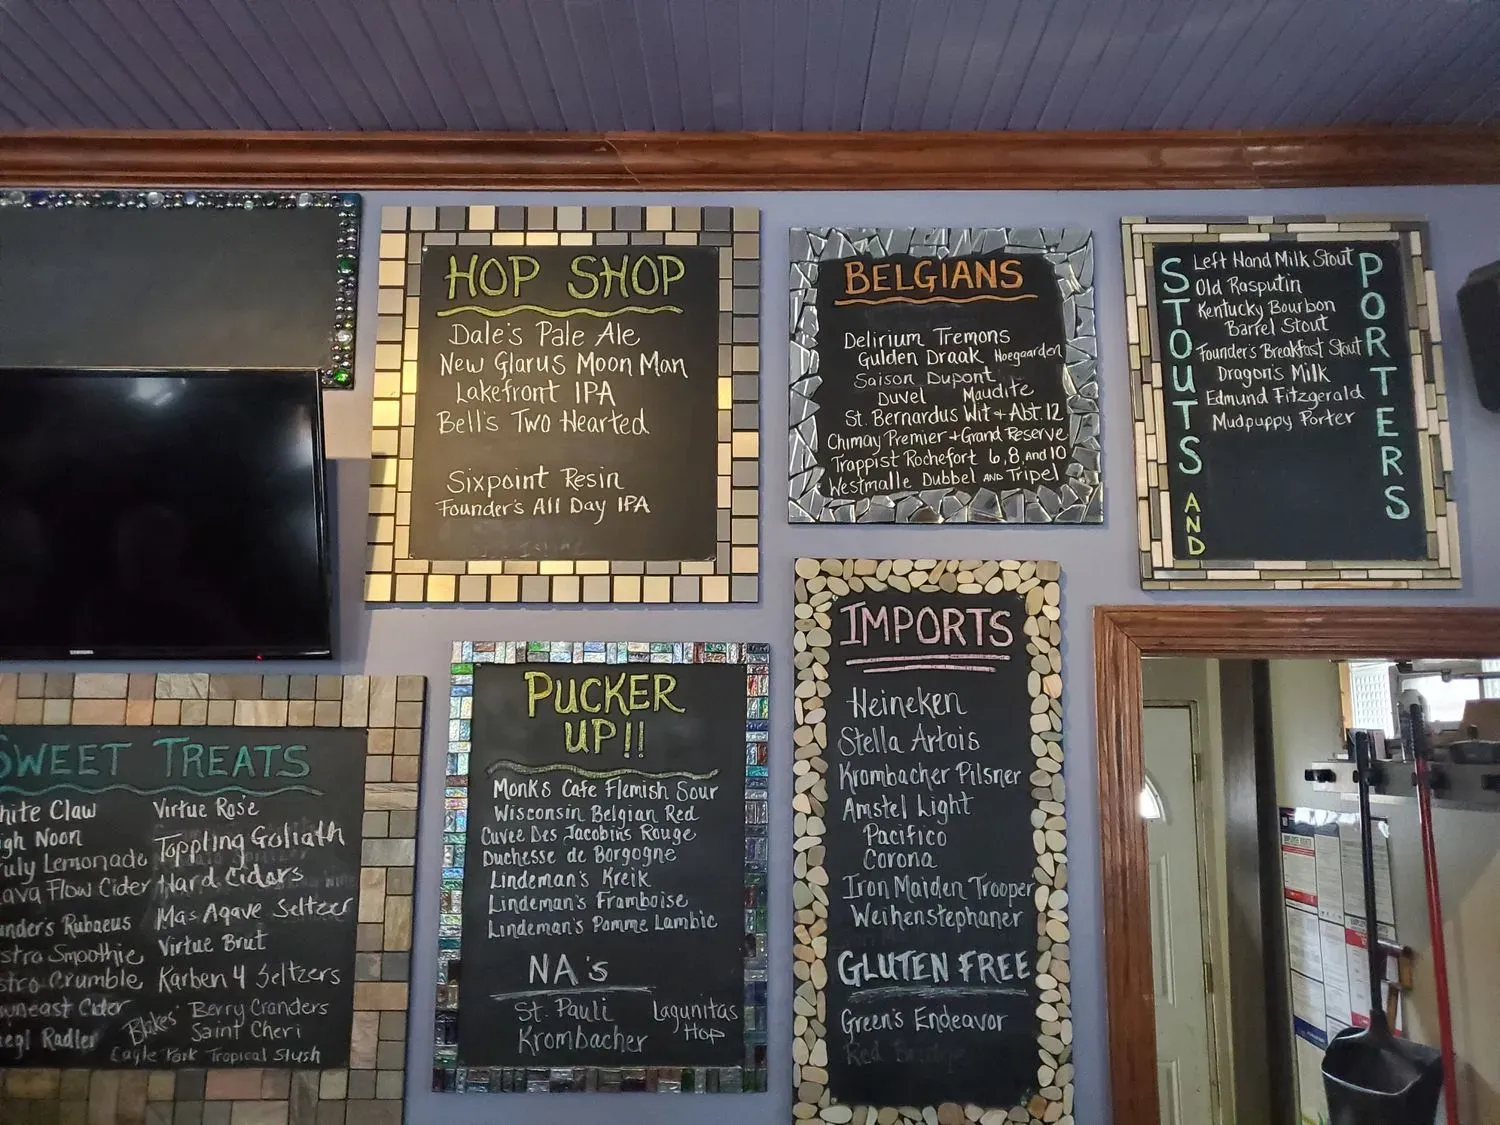 HOP SHOP
Dale's Pale Ale
New Glarus Moon Man
Lakefront IPA
Bell's Two Hearted
Sixpoint Resin
Founder's All Day IPA
BELGIANS
Delirium Tremons
Gulden Draak Hoegaarden
Saison Dupont
Duvel Maudite
St. Bernardus Wit + Abt. 12
Chimay Premier + Grand Reserve
Trappist Rochefort 6, 8, and 10
Westmalle Dubbel AND Tripel
STOUTS AND
PORTERS
Left Hand Milk Stout
Old Rasputin
Kentucky Bourbon
Barrel Stout
Founder's Breakfast Stout
Dragon's Milk
Edmund Fitzgerald
Mudpuppy Porter
SAMSUNG
SWEET TREATS
White Claw
High Noon
Truly Lemonade
Lava Flow Cider
nder's Rubaeus
stra Smoothie
stro Crumble
wneast Cider
iegl Radler
Virtue Rosé
Toppling Goliath
Hard Cidars
Mas Agave Seltzer
Virtue Brut
Karben 4 Seltzers
Blakes' Berry Cranders
Saint Cheri
Eagle Park Tropical Slush
PUCKER
UP!!
Monk's Cafe Flemish Sour
Wisconsin Belgian Red
Cuvee Des Jacobins Rouge
Duchesse de Borgogne
Lindeman's Kreik
Lindeman's Framboise
Lindeman's Pomme Lambic
NA's
St. Pauli
Krombacher
Lagunitas
Hop
IMPORTS
Heineken
Stella Artois
Krombacher Pilsner
Amstel Light
Pacifico
Corona
Iron Maiden Trooper
Weihenstephaner
GLUTEN FREE
Green's Endeavor
Red Bridge